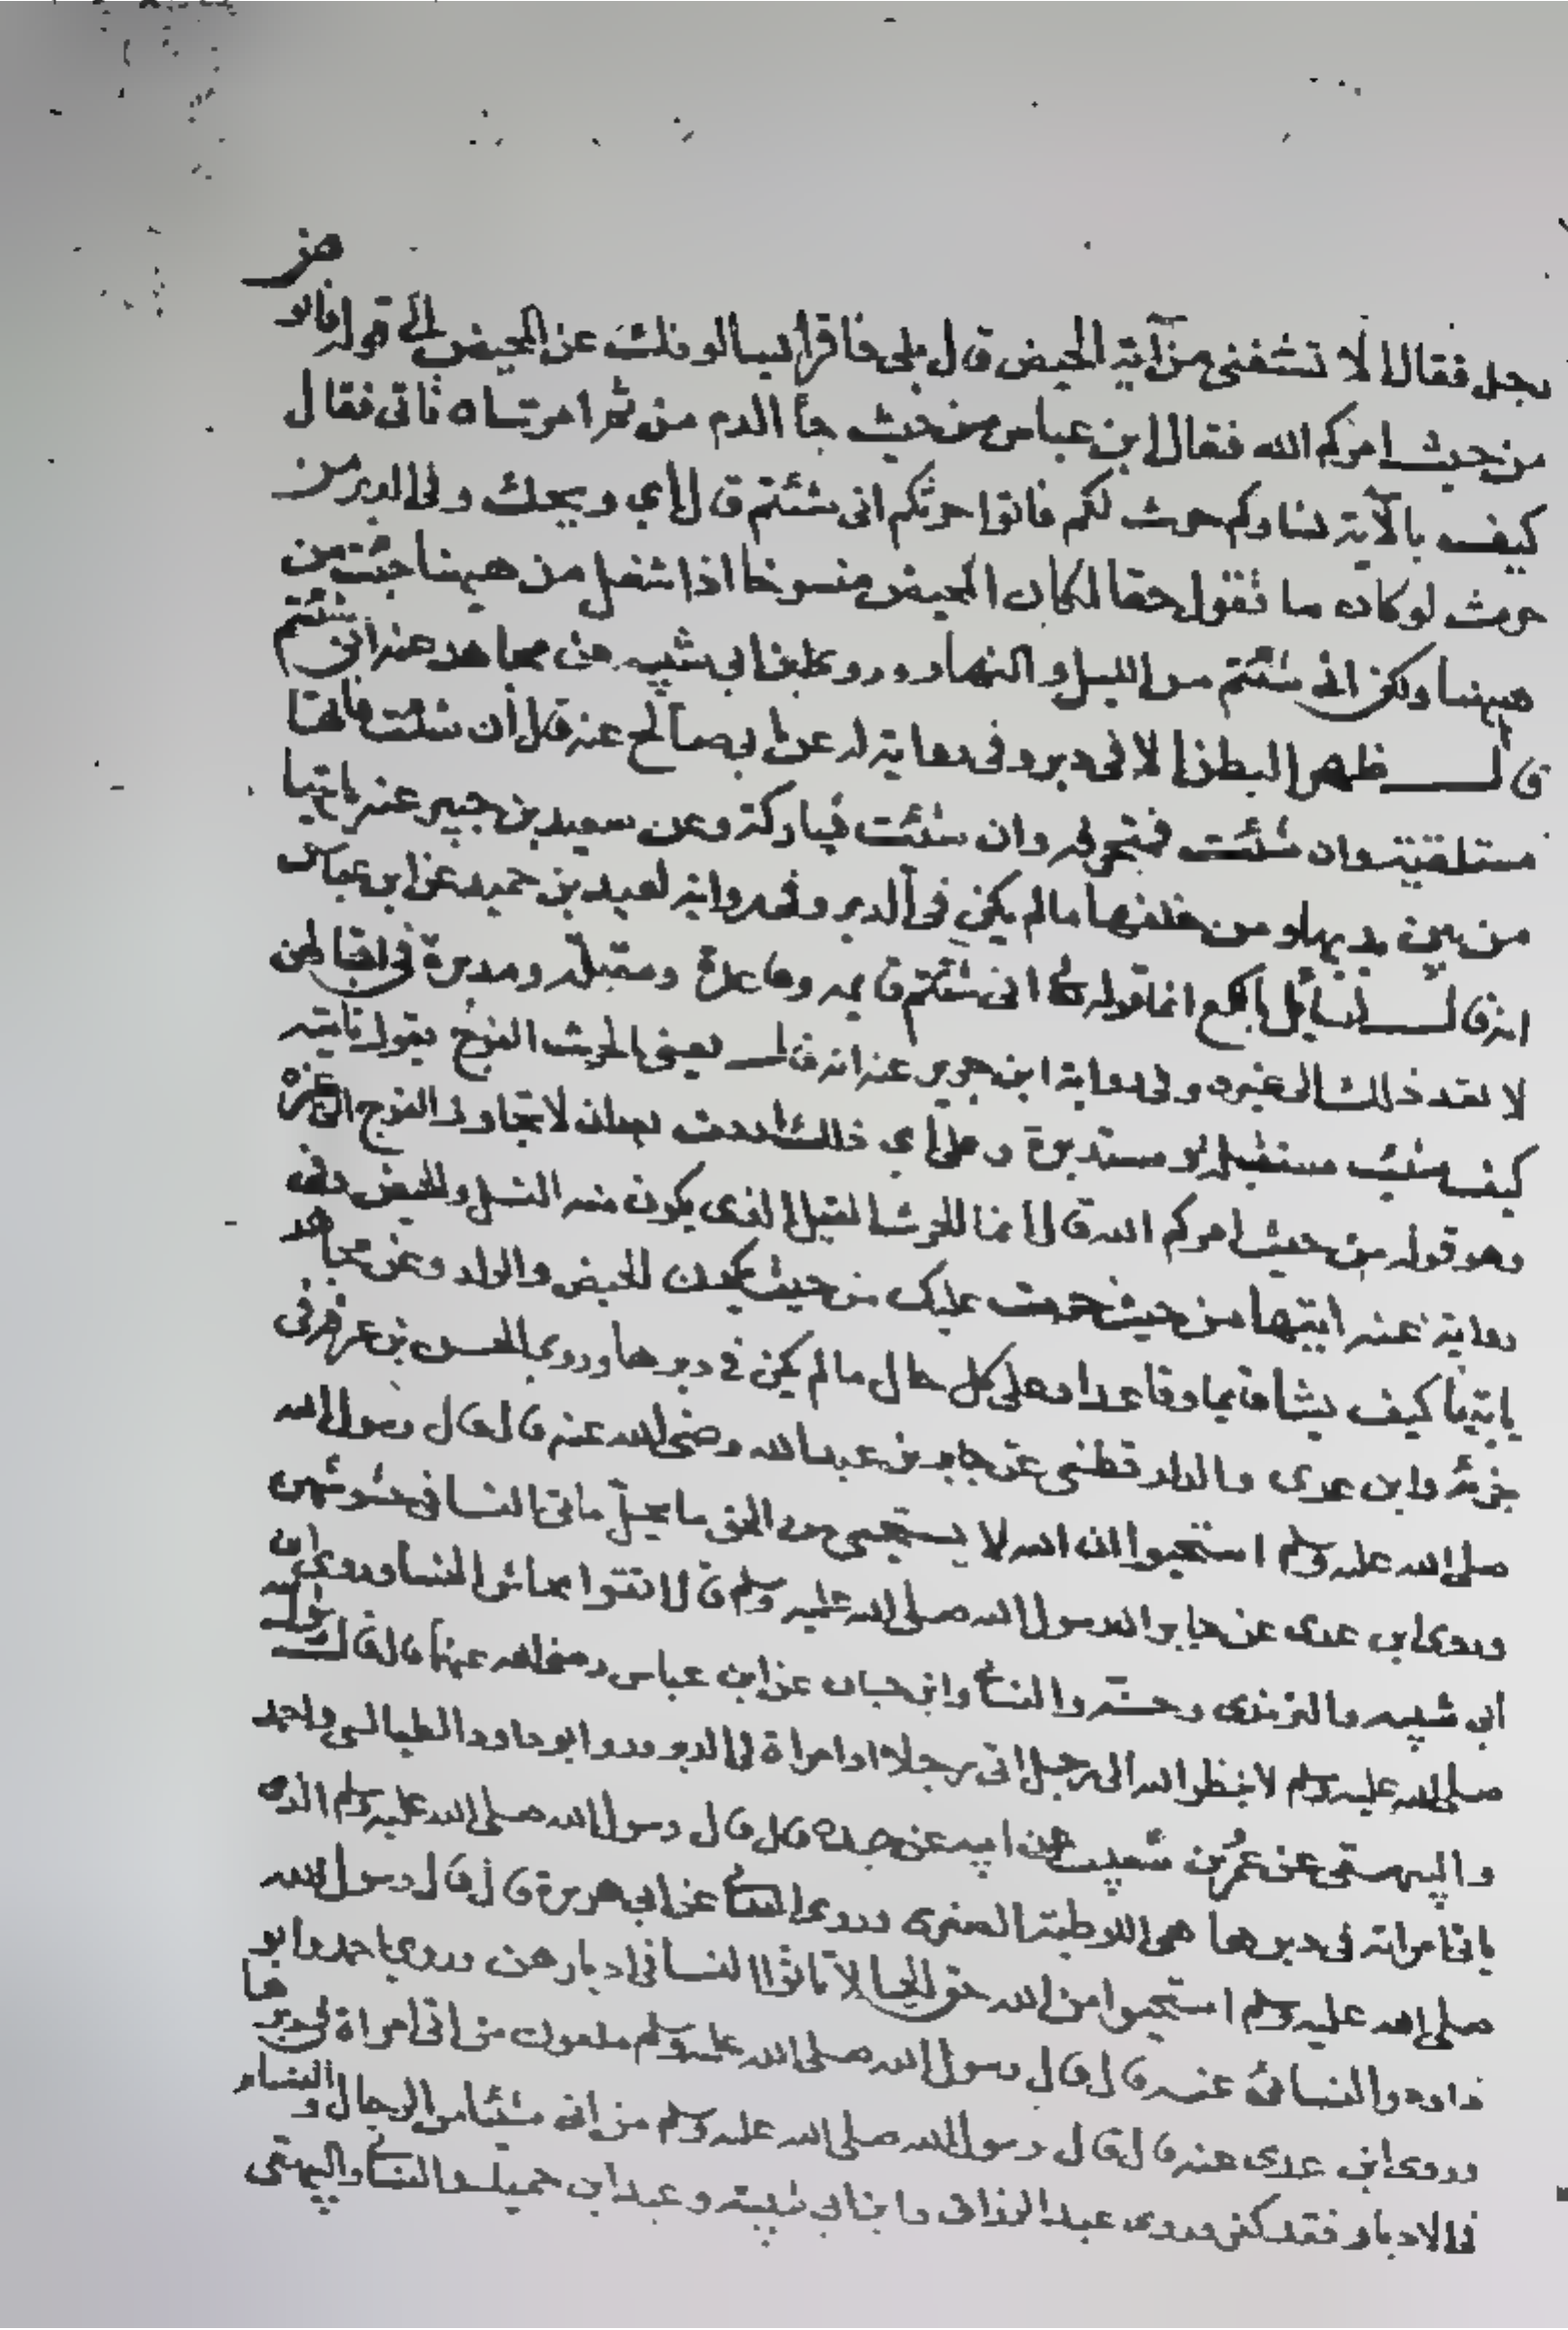 رجل فقال الا تشفني من آية المحيض قال بلى فاقرا ويسالونك عن المحيض الى قوله فاتو
هن
من حيث امركم الله فقال ابن عباس من حيث جأ الدم من ثم امرت ان تاتى فقال
كيف بالآية نساوكم حرث لكم فاتوا حرثكم انى شئتم قال أي ويحك وفى الدبر من
حرث لو كان ما تقول حقا لكان المحيض منسوخا اذا شغل من ههنا جئت من
ههنا ولكن انى شئتم من الليل والنهار وروى ابن ابي شيبه عن مجاهد عنه أنى شئتم
قال ظهرا لبطن الا فى دبر وفى رواية له عن ابى صالح عنه قال أن شئت فأتها
مستلقية وان شئت فمتحرفه وان شئت فباركة وعن سعيد بن جبير عنه ياتيها
من بين يديها ومن خلفها ما لم يكن فى الدبر وفى رواية لعبد بن حميد عن ابن عباس
انه قال انما قوله انى شئتم قايمه وقاعدة ومقبلة ومدبرة فى اقبالهن
لا تعد ذلك الى غيره وفى رواية ابن جرير عنه انه قال يعنى بالحرث الفرج يقول تاتيه
كيف شئت مستقبله او مستدبرة وعلى أي ذلك اردت بعد ان لا تجاوز الفرج الى غيره
وهو قوله من حيث امركم الله قال انما الحرث القبل الذى يكون منه النسل والحيض وفى
رواية عنه ايتها من حيث حرمت عليك من حيث يكون الحيض والولد وعن مجاهد
ياتيها كيف يشا قايما وقاعدا وعلى كل حال ما لم يكن فى دبرها وروى الحسن بن عرفة فى
جزئه وابن عدى والدار قطنى عن جابر بن عبد الله رضى الله عنه قال قال رسول الله
صلى الله عليه وسلم استحيوا ان الله لا يستحيى من الحق ما يحل ماتى النسا فى حشوشهن
وروى ابن عدى عن جابر ان رسول الله صلى الله عليه وسلم قال اتقوا محاش النسا وروى ابن
أبى شيبه والترمذى وحسنه والنسائى وابن حبان عن ابن عباس رضى الله عنهما قال قال رسول الله
صلى الله عليه وسلم لا ينظر الله الى رجل اتى رجلا او امراة فى الدبر وروى ابو داود الطيالسى واحمد
والبيهقى عن عمر بن شعيب عن ابيه عن جده قال قال رسول الله صلى الله عليه وسلم الذى
ياتى امراته فى دبرها هى اللوطية الصغرى وروى النسائى عن ابى هريرة قال قال رسول الله
صلى الله عليه وسلم استحيوا من الله حق الحيا لا تاتوا النسا فى ادبارهن وروى احمد وابو
داود والنسائى عنه قال قال رسول الله صلى الله عليه وسلم ملعون من اتى امراة فى دبرها
وروى ابن عدى عنه قال قال رسول الله صلى الله عليه وسلم من اتى شيئا من الرجال والنساء
فى الادبار فقد كفر وروى عبد الرزاق وابن ابى شيبة وعبد ابن حميد والنسائى والبيهقى